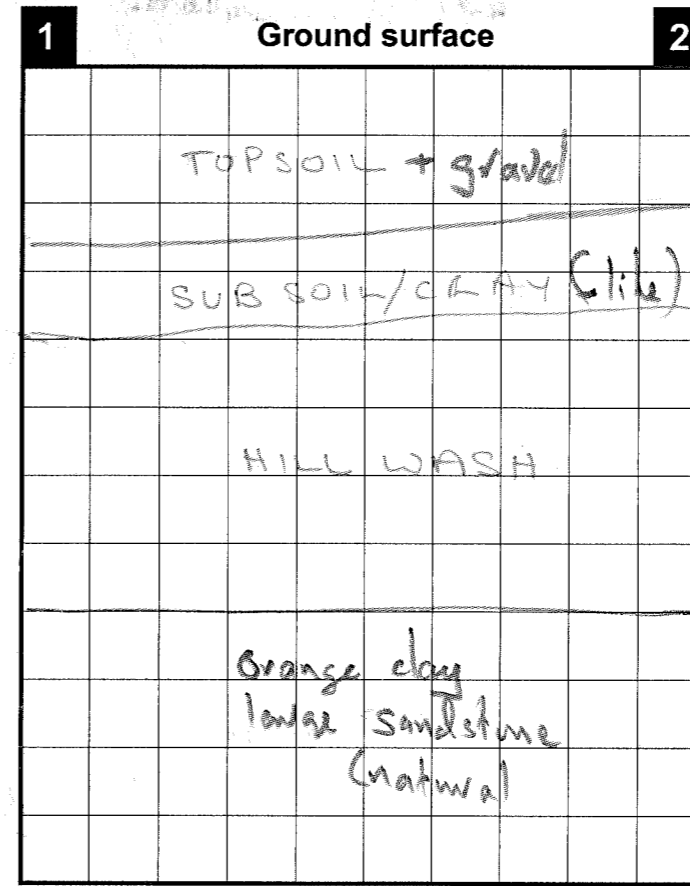 1 Ground surface 2
TOPSOIL + gravel
SUBSOIL/CLAY (tile)
HILL WASH
orange clay
large sandstone
(natural